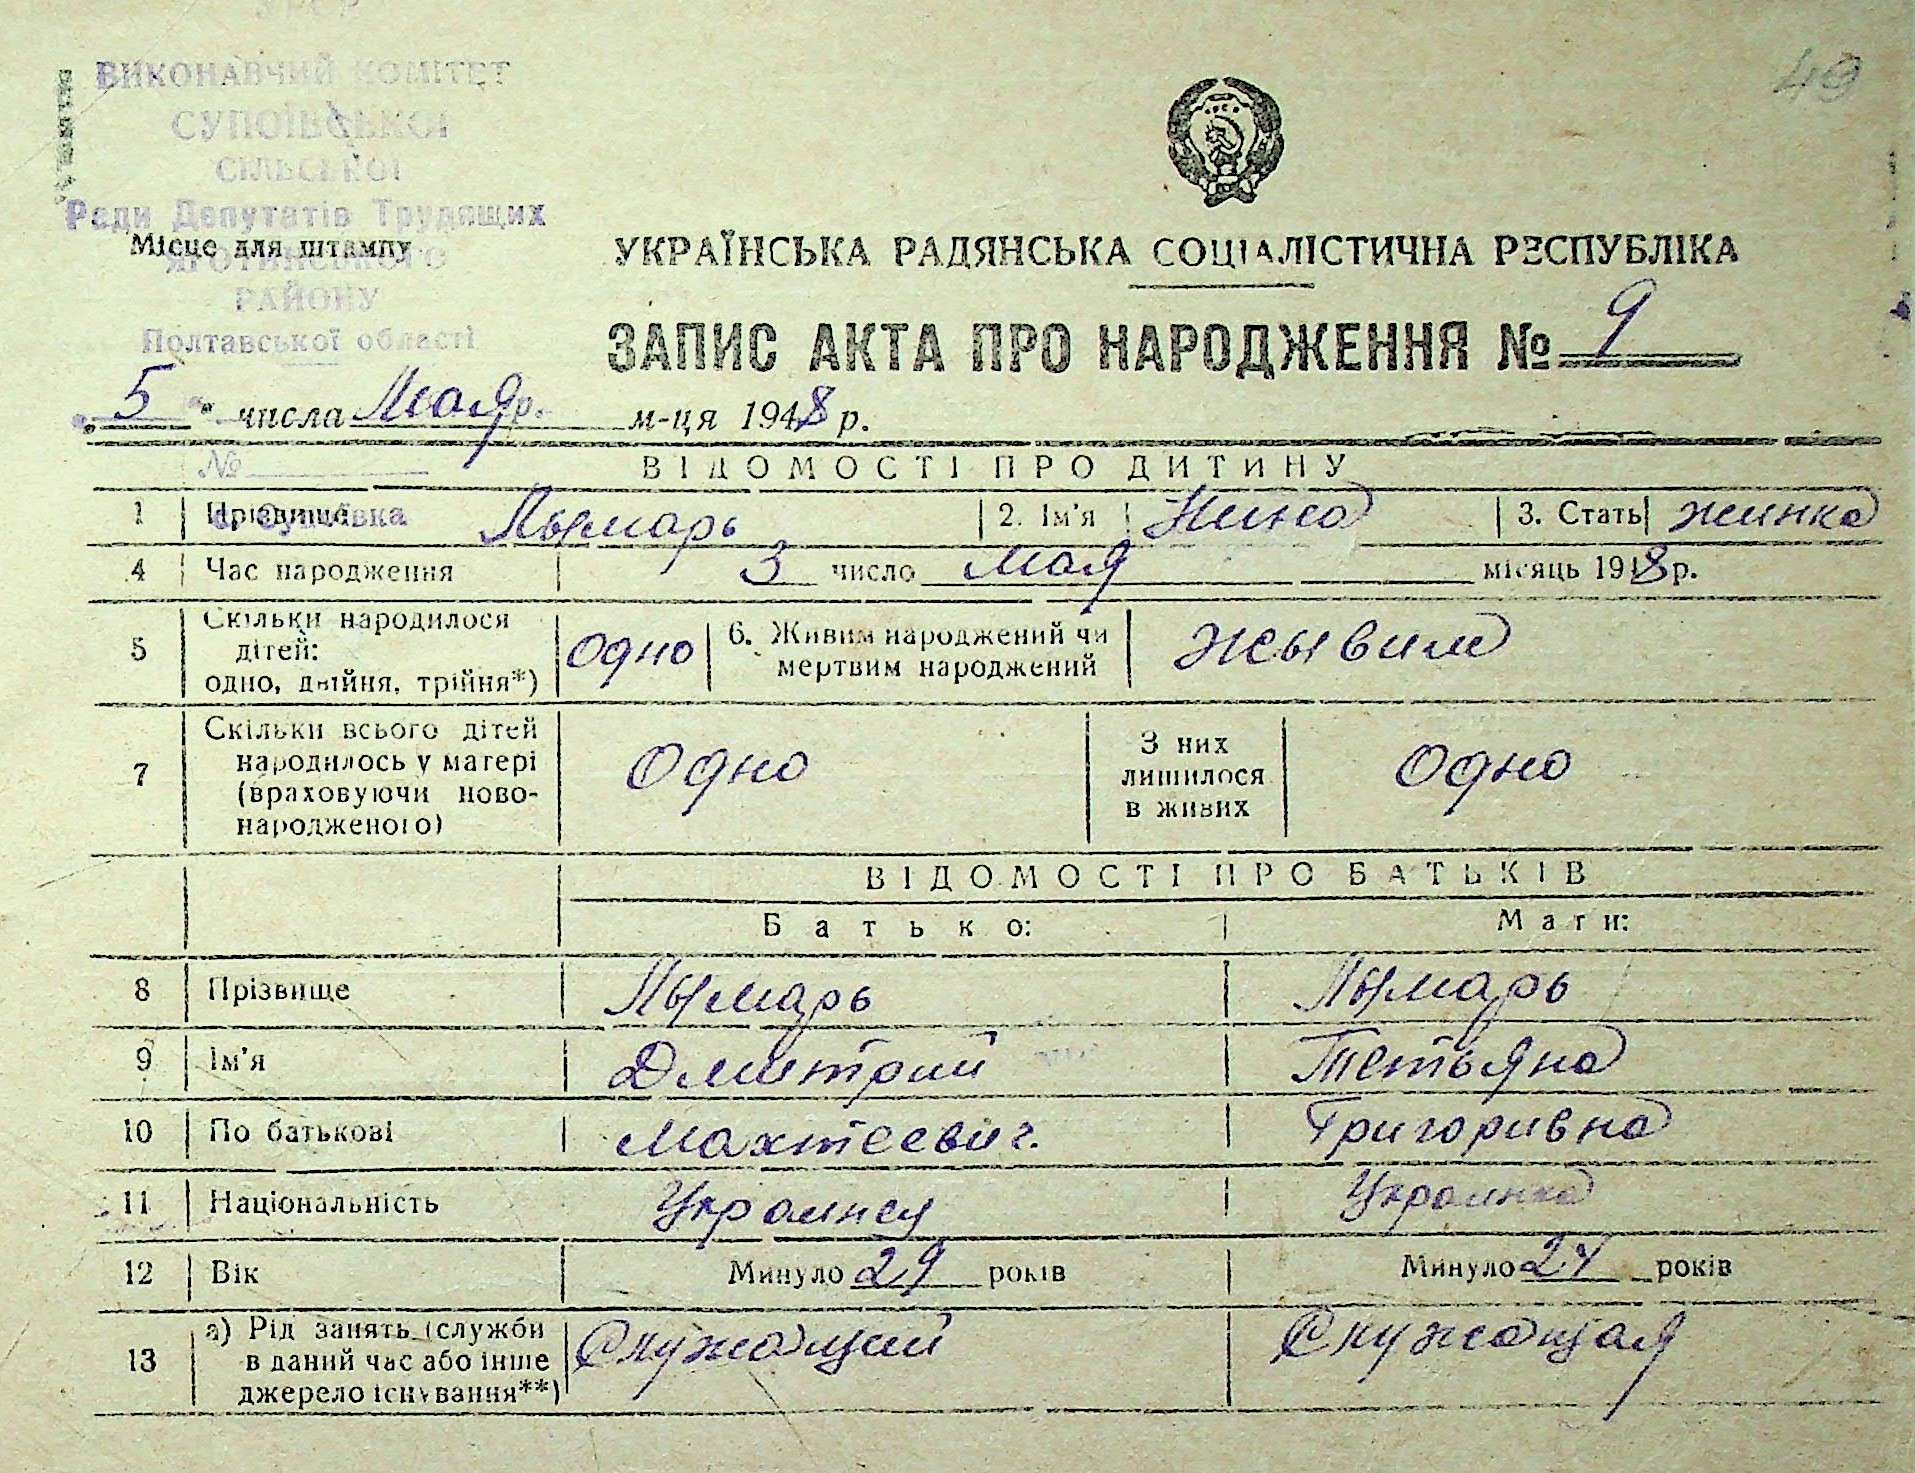 УРСР
49
ВИКОНАВЧИЙ КОМІТЕТ
СУПОЇВСЬКОЇ
СІЛЬСЬКОЇ
Ради Депутатів Трудящих
Місце для штампу
ЯГОТИНСЬКОГО
РАЙОНУ
Полтавської області
УКРАЇНСЬКА РАДЯНСЬКА СОЦІАЛІСТИЧНА РЕСПУБЛІКА
ЗАПИС АКТА ПРО НАРОДЖЕННЯ № 9
„ 5 " числа Мая р. м-ця 1948 р.
№
ВІДОМОСТІ ПРО ДИТИНУ
с. Супоївка
1 Прізвище Лымарь 2. Ім'я Нина 3. Стать жинка
4 Час народження 3 число мая місяць 1948 р.
5 Скільки народилося дітей: одно, двійня, трійня*) Одно 6. Живим народжений чи мертвим народжений жывим
7 Скільки всього дітей народилось у матері (враховуючи ново-народженого) Одно З них лишилося в живих Одно
ВІДОМОСТІ ПРО БАТЬКІВ
Батько: Мати:
8 Прізвище Лымарь Лымарь
9 Ім'я Дмитрий Тетьяна
10 По батькові Махтеевич. Григоривна
11 Національність Украинец Украинка
12 Вік Минуло 29 років Минуло 24 років
13 а) Рід занять (служби в даний час або інше джерело існування**) Служащий Служащая